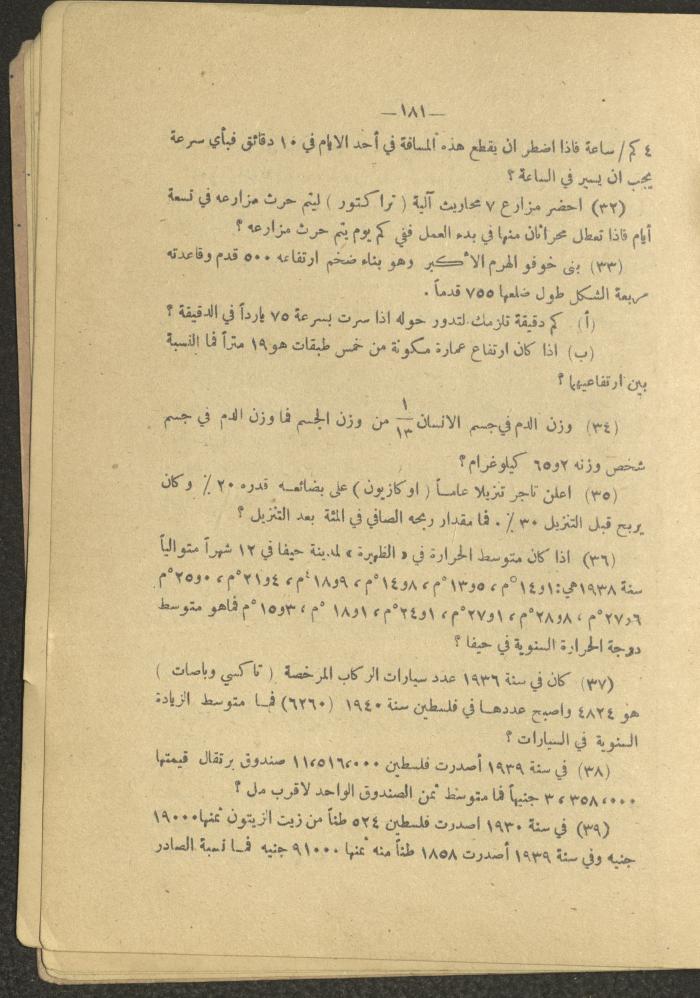 —١٨١—
٤ كم / ساعة فاذا اضطر ان يقطع هذه المسافة في أحد الايام في ١٠ دقائق فبأي سرعة
يجب ان يسير في الساعة ؟
(٣٢) احضر مزارع ٧ محاريث آلية ( تراكتور ) ليتم حرث مزارعه في تسعة
أيام فاذا تعطل محراثان منها في بدء العمل ففي كم يوم يتم حرث مزارعه ؟
(٣٣) بنى خوفو الهرم الأكبر وهو بناء ضخم ارتفاعه ٥٠٠ قدم وقاعدته
مربعة الشكل طول ضلعها ٧٥٥ قدماً .
(أ) كم دقيقة تلزمك لتدور حوله اذا سرت بسرعة ٧٥ يارداً في الدقيقة ؟
(ب) اذا كان ارتفاع عمارة مكونة من خمس طبقات هو ١٩ متراً فما النسبة
بين ارتفاعيهما ؟
(٣٤) وزن الدم في جسم الانسان ١/١٣ من وزن الجسم فما وزن الدم في جسم
شخص وزنه ٢و٦٥ كيلوغرام ؟
(٣٥) اعلن تاجر تنزيلا عاماً ( اوكازيون ) على بضائعه قدره ٢٠ ٪ وكان
يربح قبل التنزيل ٣٠ ٪ . فما مقدار ربحه الصافي في المئة بعد التنزيل ؟
(٣٦) اذا كان متوسط الحرارة في « الظهيرة » لمدينة حيفا في ١٢ شهراً متوالياً
سنة ١٩٣٨ هي : ١و١٤°م ، ٥و١٣°م ، ٨و١٤°م ، ٩و١٨°م ، ٤و٢١°م ، ٠و٢٥°م
٦و٢٧°م ، ٨و٢٨°م ، ١و٢٧°م ، ١و٢٤°م ، ١و١٨°م ، ٣و١٥°م فماهو متوسط
درجة الحرارة السنوية في حيفا ؟
(٣٧) كان في سنة ١٩٣٦ عدد سيارات الركاب المرخصة ( تاكسي وباصات )
هو ٤٨٢٤ واصبح عددها في فلسطين سنة ١٩٤٠ (٦٢٦٠) فما متوسط الزيادة
السنوية في السيارات ؟
(٣٨) في سنة ١٩٣٩ أصدرت فلسطين ١١،٥١٦،٠٠٠ صندوق برتقال قيمتها
٣،٣٥٨،٠٠٠ جنيهاً فما متوسط ثمن الصندوق الواحد لاقرب مل ؟
(٣٩) في سنة ١٩٣٠ اصدرت فلسطين ٥٢٤ طناً من زيت الزيتون ثمنها ١٩٠٠٠
جنيه وفي سنة ١٩٣٩ أصدرت ١٨٥٨ طناً منه ثمنها ٩١٠٠٠ جنيه فما نسبة الصادر